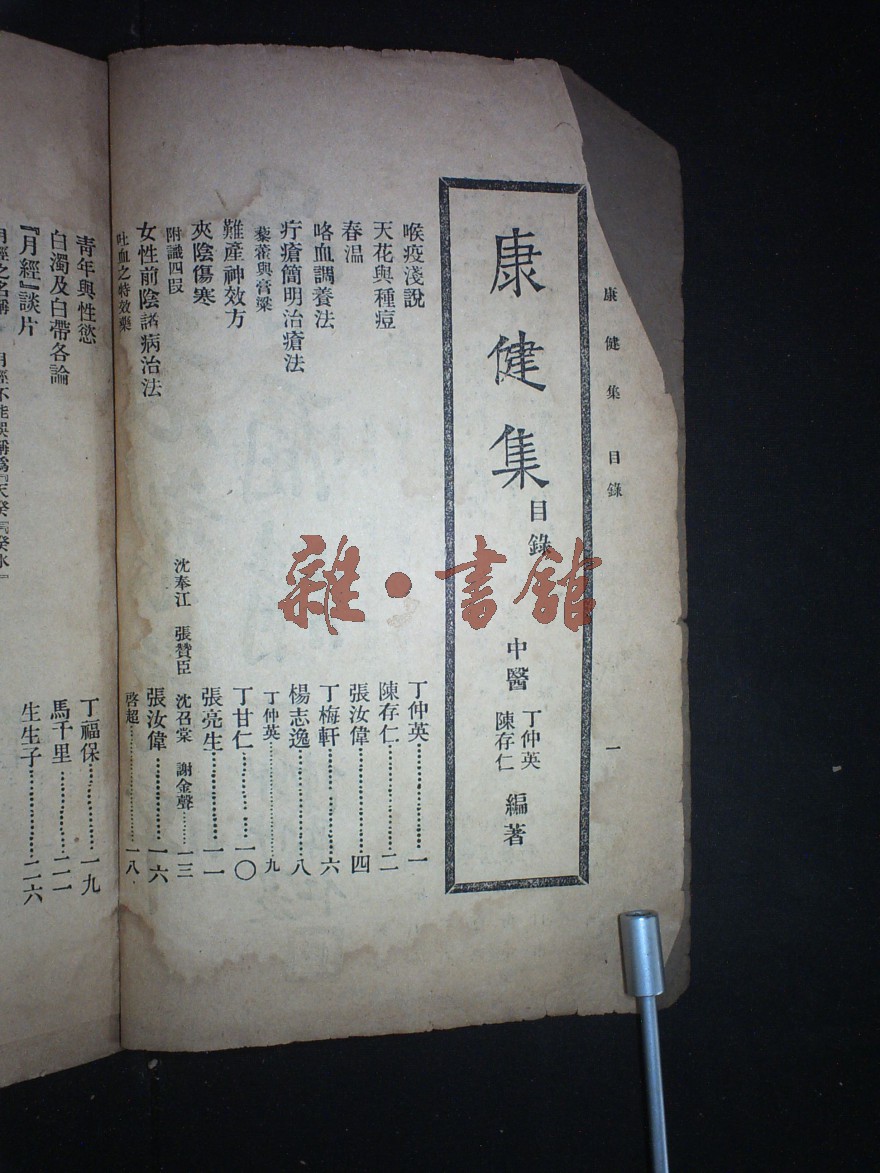 康健集 目錄 一
康健集目錄 中醫 丁仲英 陳存仁 編著
喉疫淺說 丁仲英…………一
天花與種痘 陳存仁…………二
春温 張汝偉…………四
咯血調養法 丁梅軒…………六
疔瘡簡明治瘡法 楊志逸…………八
藜藿與膏粱 丁仲英…………九
難產神效方 丁甘仁…………一〇
夾陰傷寒 張亮生…………一一
附議四段 沈奉江 張贊臣 沈召棠 謝金聲…………一三
女性前陰諸病治法 張汝偉…………一六
吐血之特效藥 啓超…………一八
青年與性慾 丁福保…………一九
白濁及白帶各論 馬千里…………二一
『月經』談片 生生子…………二六
月經之名稱 月經不能誤稱爲『天癸』『癸水』
雜·書館